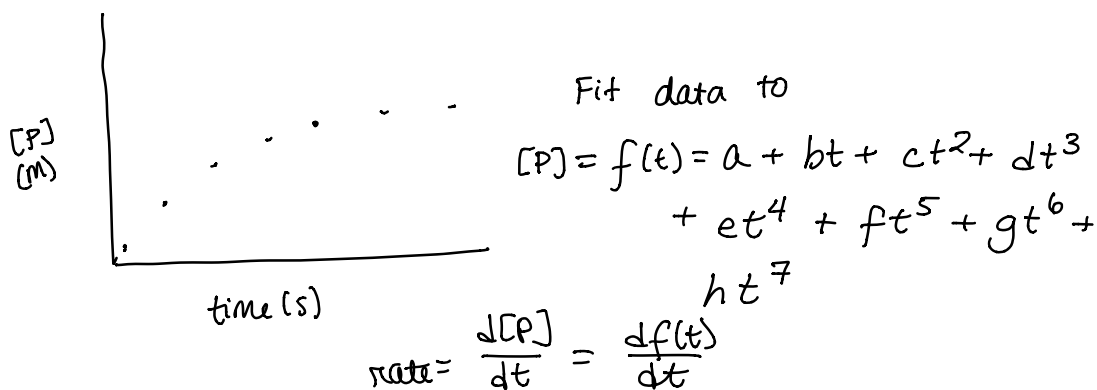 [P]
(M)
time (s)
Fit data to
[P] = f(t) = a + bt + ct² + dt³
+ et⁴ + ft⁵ + gt⁶ +
ht⁷
rate = d[P]/dt = df(t)/dt